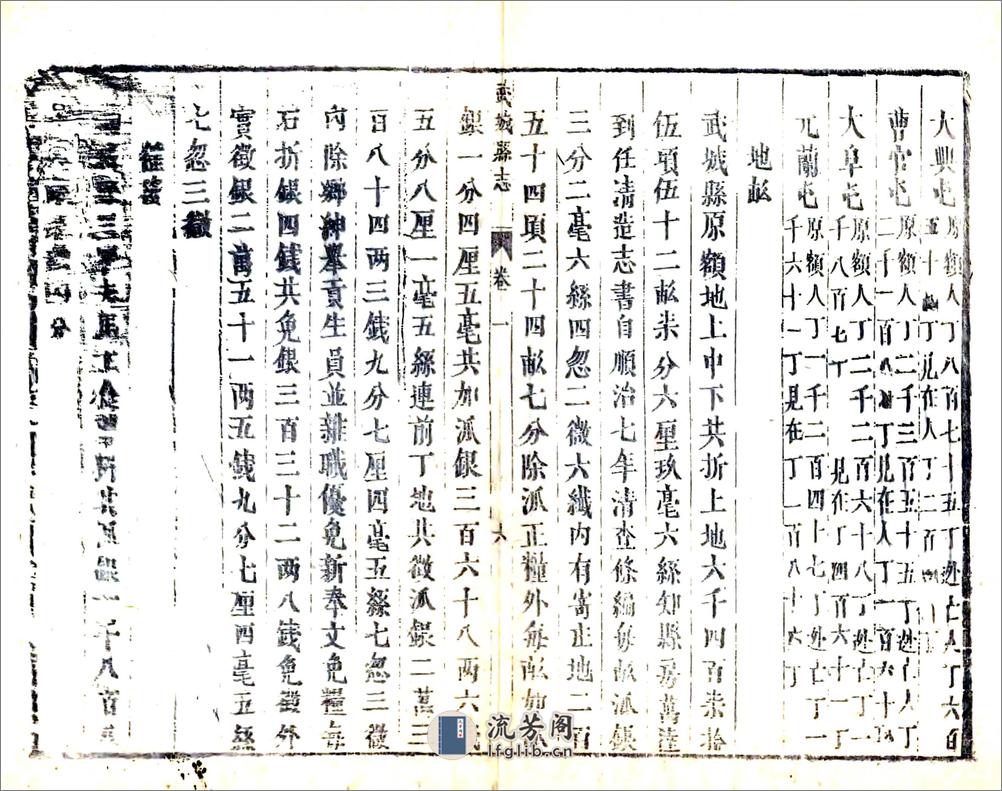 大興屯原額人丁八百七十五丁逃亡人丁六百
五十丁見在人丁二百
曹官屯原額人丁二千三百五十五丁逃亡人丁
二千一百丁見在人丁一百六十
大阜屯原額人丁二千二百六十八丁逃亡丁一
千八百七丁見在丁四百六十一丁
元蘭屯原額人丁一千二百四十七丁逃亡丁一
千六十一丁見在丁一百八十六丁
地畝
武城縣原額地上中下共折上地六千四百柒拾
伍頃伍十二畝柒分六厘玖毫六絲知縣房萬達
到任清造志書自順治七年清查條編每畝派銀
三分二毫六絲四忽二微六纖內有寄庄地二百
五十四頃二十四畝七分除派正糧外每畝加派
銀一分四厘五毫共加派銀三百六十八兩六
武城縣志 卷一 六
五分八厘一毫五絲連前丁地共徵派銀二萬三
百八十四兩三錢九分七厘四毫五絲七忽三微
內除鄉紳舉貢生員並雜職優免新奉文免糧每
石折銀四錢共免銀三百三十二兩八錢免徵外
實徵銀二萬五十一兩五錢九分七厘四毫五絲
七忽三微
銀一千八百
分